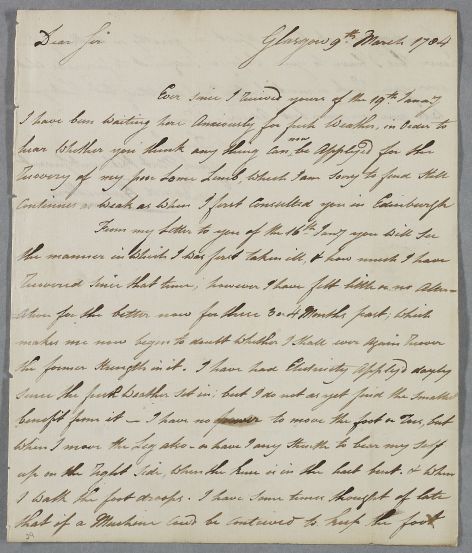 Dear Sir Glasgow 9th March 1784
Ever since I received yours of the 19th Janry
I have been waiting here Anxiously for fresh Weather, in Order to
hear Whether you think any thing can now be Applyed for the
recovery of my poor Lame Limb, which I am Sorry to find Still
Continues as weak as When I first Consulted you in Edinburgh
From my Letter to you of the 16th Janry you will See
the manner in which I was first taken ill, & how much I have
recovered since that time; however I have felt little or no Alter-
ation for the better now for these 3 or 4 Months past; which
makes me now begin to doubt whether I shall ever Again recover
the former Strength in it. I have had Electricity Applyed dayly
since the fresh Weather set in; but I do not as yet find the Smallest
benefit from it — I have no power to move the foot or Toes, but
When I move the Leg also — or have I any Strength to bear my Self
up on the right Side, When the knee is in the least bent. & When
I walk the foot droops. I have Some times thought of late
that if a Machine could be contrived to keep the foot
29